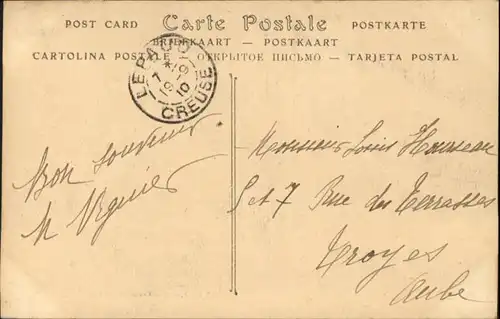 POST CARD Carte Postale POSTKARTE
BRIEFKAART — POSTKAART
CARTOLINA POSTALE — ОТКРЫТОЕ ПИСЬМО — TARJETA POSTAL
LEPAUD
7 19
10
CREUSE
Bon souvenir
Monsieur Louis
5 et 7 Rue des Terrasses
Troyes
Aube